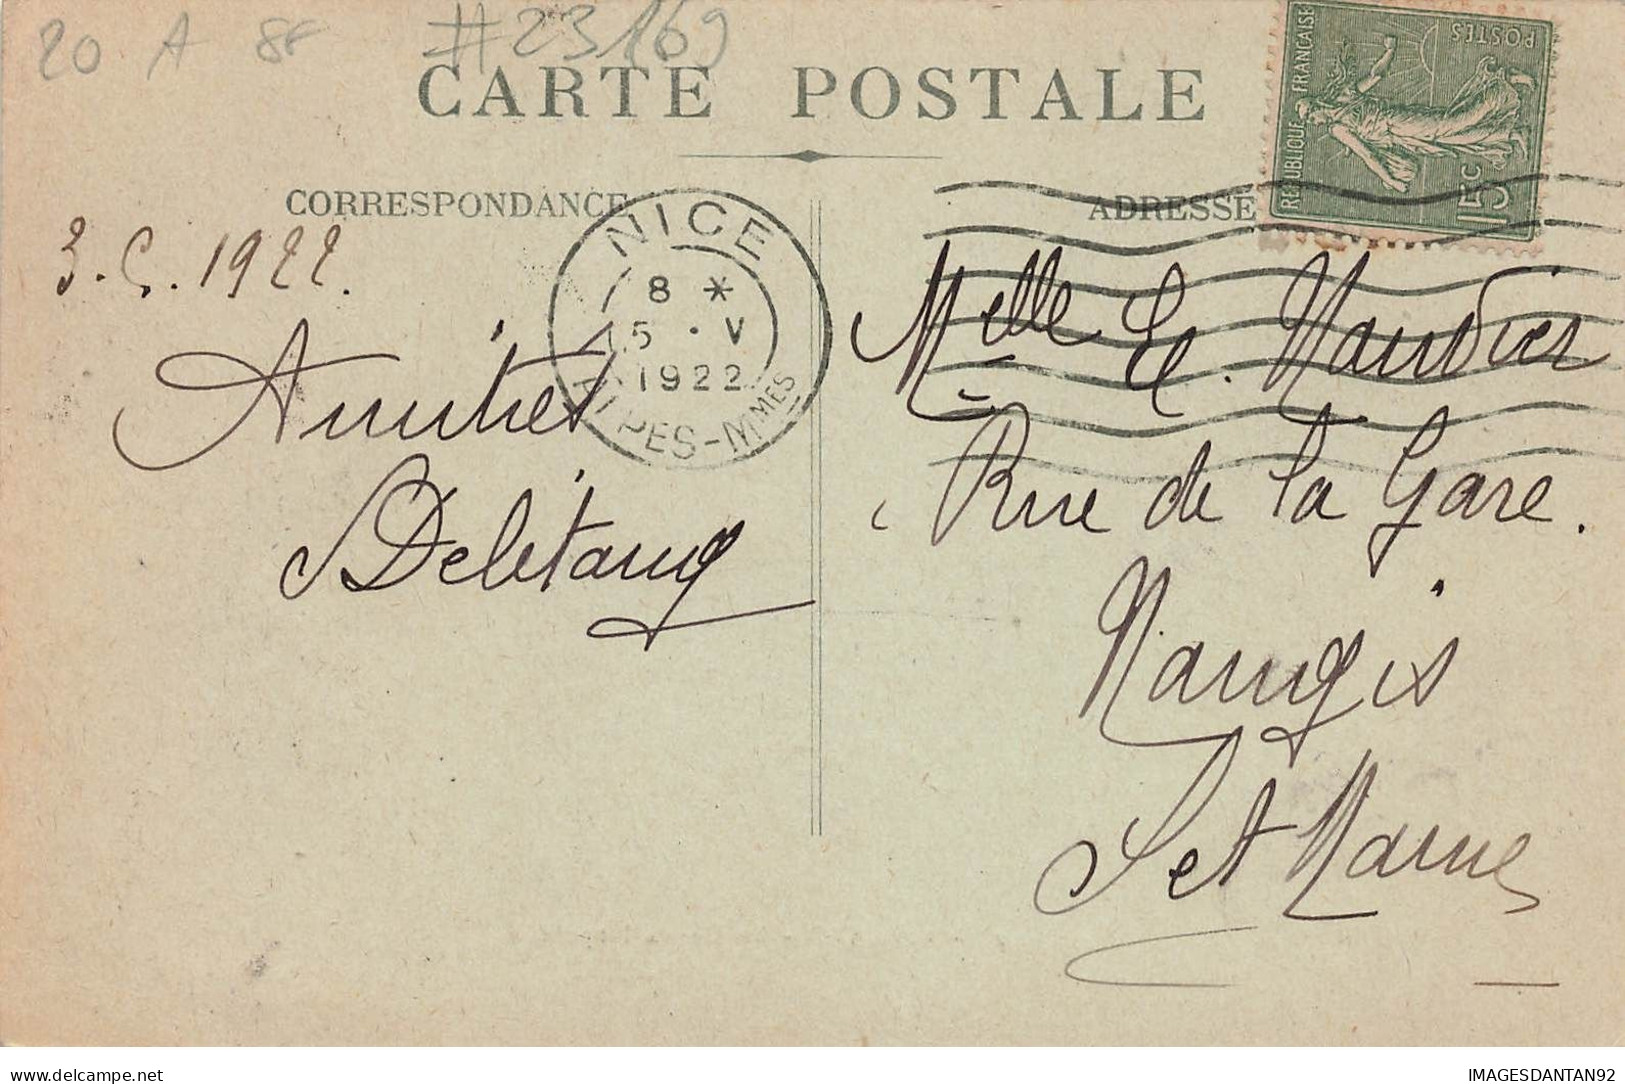 20 A 88
#23169
CARTE POSTALE
RÉPUBLIQUE FRANÇAISE
POSTES
15c
CORRESPONDANCE
ADRESSE
NICE
8 *
15 · V
1922
ALPES-MMES
3.5.1922.
Amitiés
Delétang
Melle E. Naudier
Rue de la Gare.
Nangis
S et Marne
IMAGESDANTAN92
delcampe.net